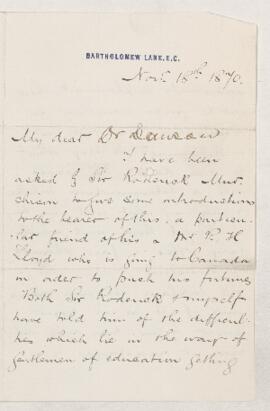 BARTHOLOMEW LANE, E.C.
Nov. 18th 1870.
My dear Dr Dawson
I have been
asked by Sir Roderick Mur-
chison to give some introductions
to the bearer of this, a particu-
lar friend of his a Mr P. H
Lloyd who is going to Canada
in order to push his fortunes
Both Sir Roderick & myself
have told him of the difficul-
ties which lie in the way of
gentlemen of education getting